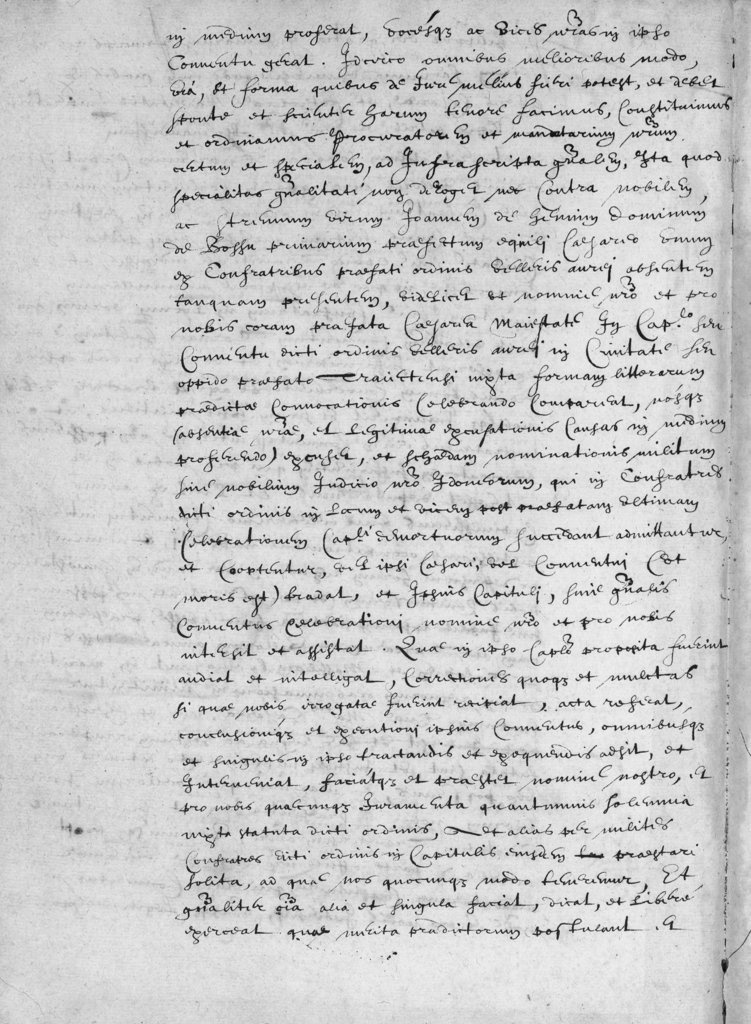 in medium proferat, vocésqz ac vices nr̃as in ipso
Conventu gerat. Idcirco omnibus melioribus modo,
viá, et forma quibus de Iure melius fieri potest, et debet
sponte et scienter harum tenore facimus, Constituimus
et ordinamus Procuratorem et mandatarium nr̃um
certum et specialem, ad Infra scripta gñalem, Ita quod
specialitas gñalitati non deroget nec contra nobilem
ac strenuum virum Ioannem de Hennin Dominum
de Bossu primarium praefectum equilj Caesareo unum
ex Confratribus praefati ordinis velleris aurej absentem
tanquam presentem, videlicet ut nomine nr̃o et pro
nobis coram praefata Caesarea Maiestate In Cap.lo seu
Conventu dicti ordinis velleris aurej in Civitate seu
oppido praefato Traiectensi iuxta formam litterarum
praedictae Convocationis Celebrando Compareat, nósqz
(absentiae nr̃ae, et legitimae excusationis Causas in medium
proferendo) excuset, et schedam nominationis militum
sive nobilium Iudicio nr̃o Idoneorum, qui in Confratres
dicti ordinis in locum et vicem post praefatam ultimam
Celebrationem Cap.li demortuorum succedant admittantur,
et Cooptentur, vel ipsi Caesari, vel Conventuj (ut
moris est) tradat, et Ipsius Capitulj, sive gñalis
Conventus Celebrationj nomine nr̃o et pro nobis
intersit et assistat. Quae in ipso Caplo proposita fuerint
audiat et intelligat, Correctiones quoqz et mulctas
si quae nobis irrogatae fuerint recipiat, acta referat,
conclusioniqz et executionj ipsius Conventus, omnibusqz
et singulis in ipso tractandis et exequendis adsit, et
Interveniat, faciátqz et praestet nomine nostro, et
pro nobis quaecunqz Iuramenta quantumvis solennia
iuxta statuta dicti ordinis, et alias per milites
Confratres dicti ordinis in Capitulis eiusdem praestari
solita, ad quae nos quocunqz modo teneremur, Et
gñaliter oĩa alia et singula faciat, dicat, et liberé
exerceat quae merita praedictorum postulant et